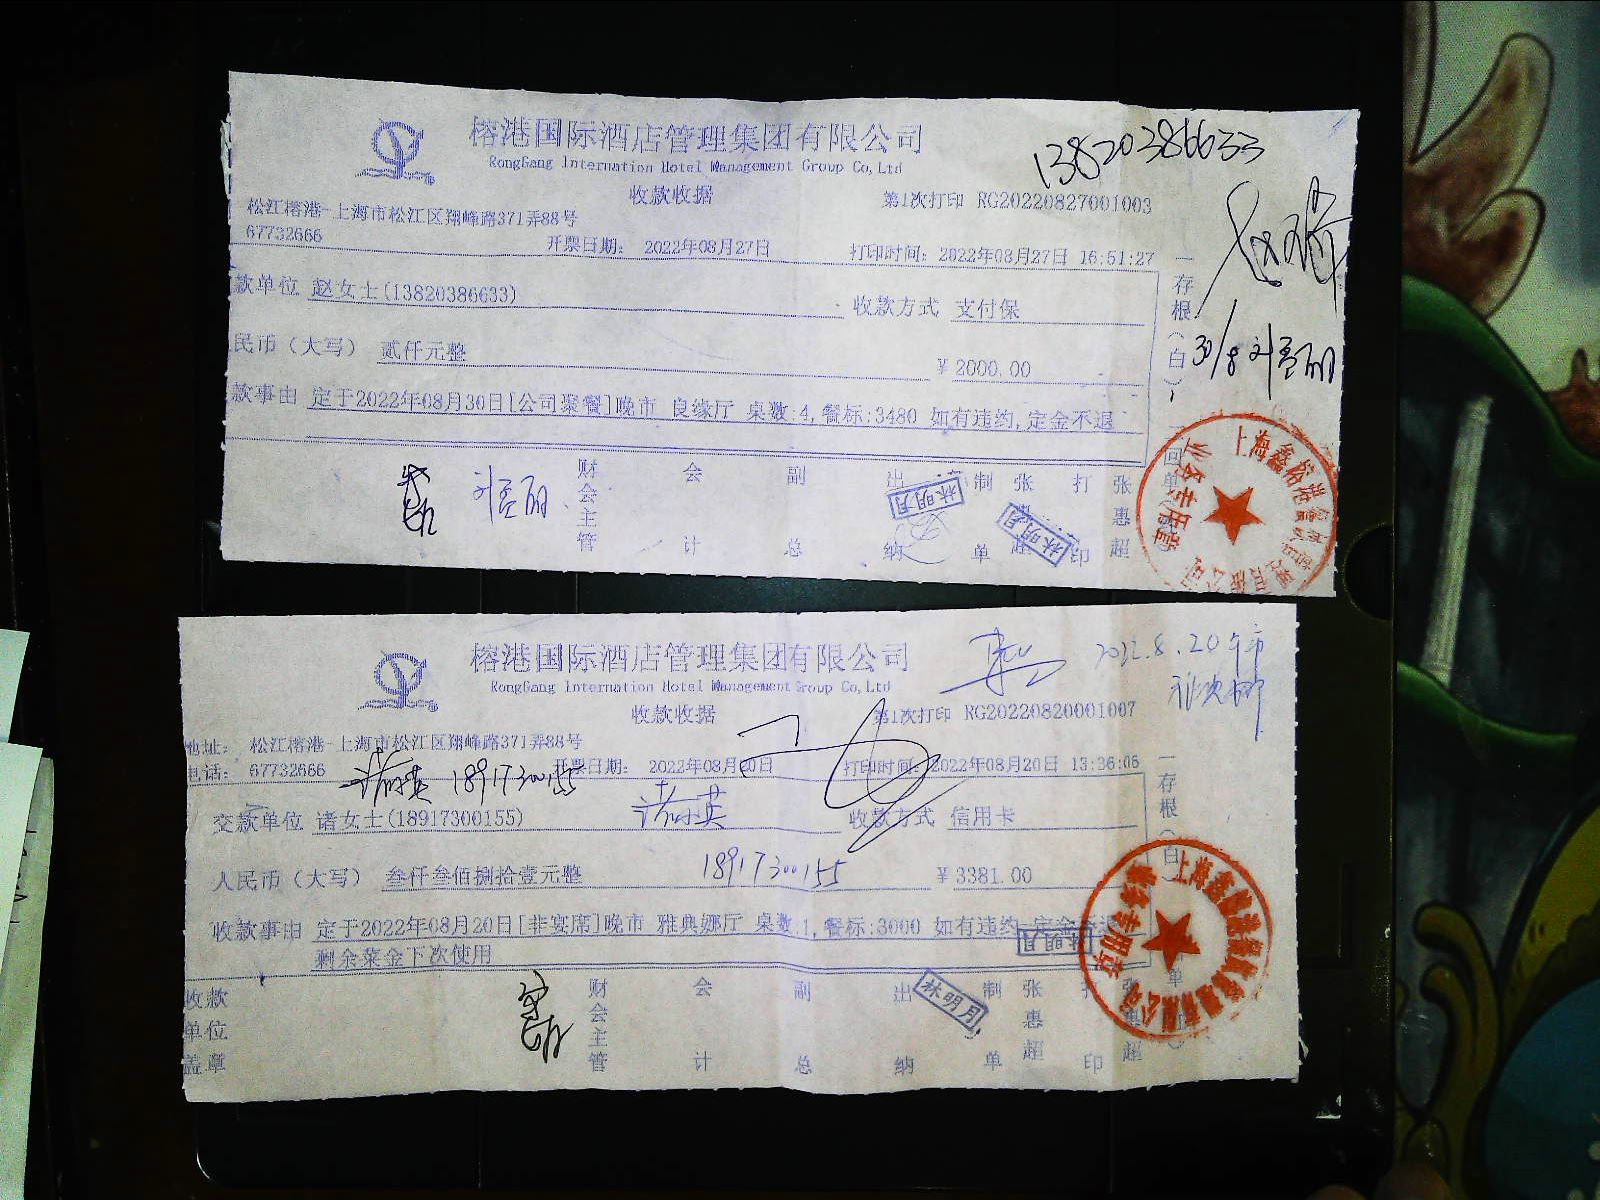 榕港国际酒店管理集团有限公司
RongGang Internation Hotel Management Group Co,Ltd
13820386633
收款收据
第1次打印 RG20220827001003
松江榕港-上海市松江区翔峰路371弄88号
67732666
开票日期: 2022年08月27日
打印时间: 2022年08月27日 16:51:27
款单位 赵女士(13820386633)
收款方式 支付保
民币(大写) 贰仟元整
¥2000.00
款事由 定于2022年08月30日[公司聚餐]晚市 良缘厅 桌数:4,餐标:3480 如有违约,定金不退
存根(白)
30/8
财会主管
会计
副总
出纳
制单
张惠超
打印
张惠超
林明月
林明月
业务专用章
榕港国际酒店管理集团有限公司
RongGang Internation Hotel Management Group Co,Ltd
2022.8.20午市
收款收据
第1次打印 RG20220820001007
地址: 松江榕港-上海市松江区翔峰路371弄88号
电话: 67732666
开票日期: 2022年08月20日
打印时间: 2022年08月20日 13:36:06
18917300155
交款单位 诸女士(18917300155)
收款方式 信用卡
人民币(大写) 叁仟叁佰捌拾壹元整
18917300155
¥3381.00
收款事由 定于2022年08月20日[非宴席]晚市 雅典娜厅 桌数:1,餐标:3000 如有违约,定金不退
剩余菜金下次使用
存根(白)
收款单位盖章
财会主管
会计
副总
出纳
制单
张惠超
打印
林明月
林明月